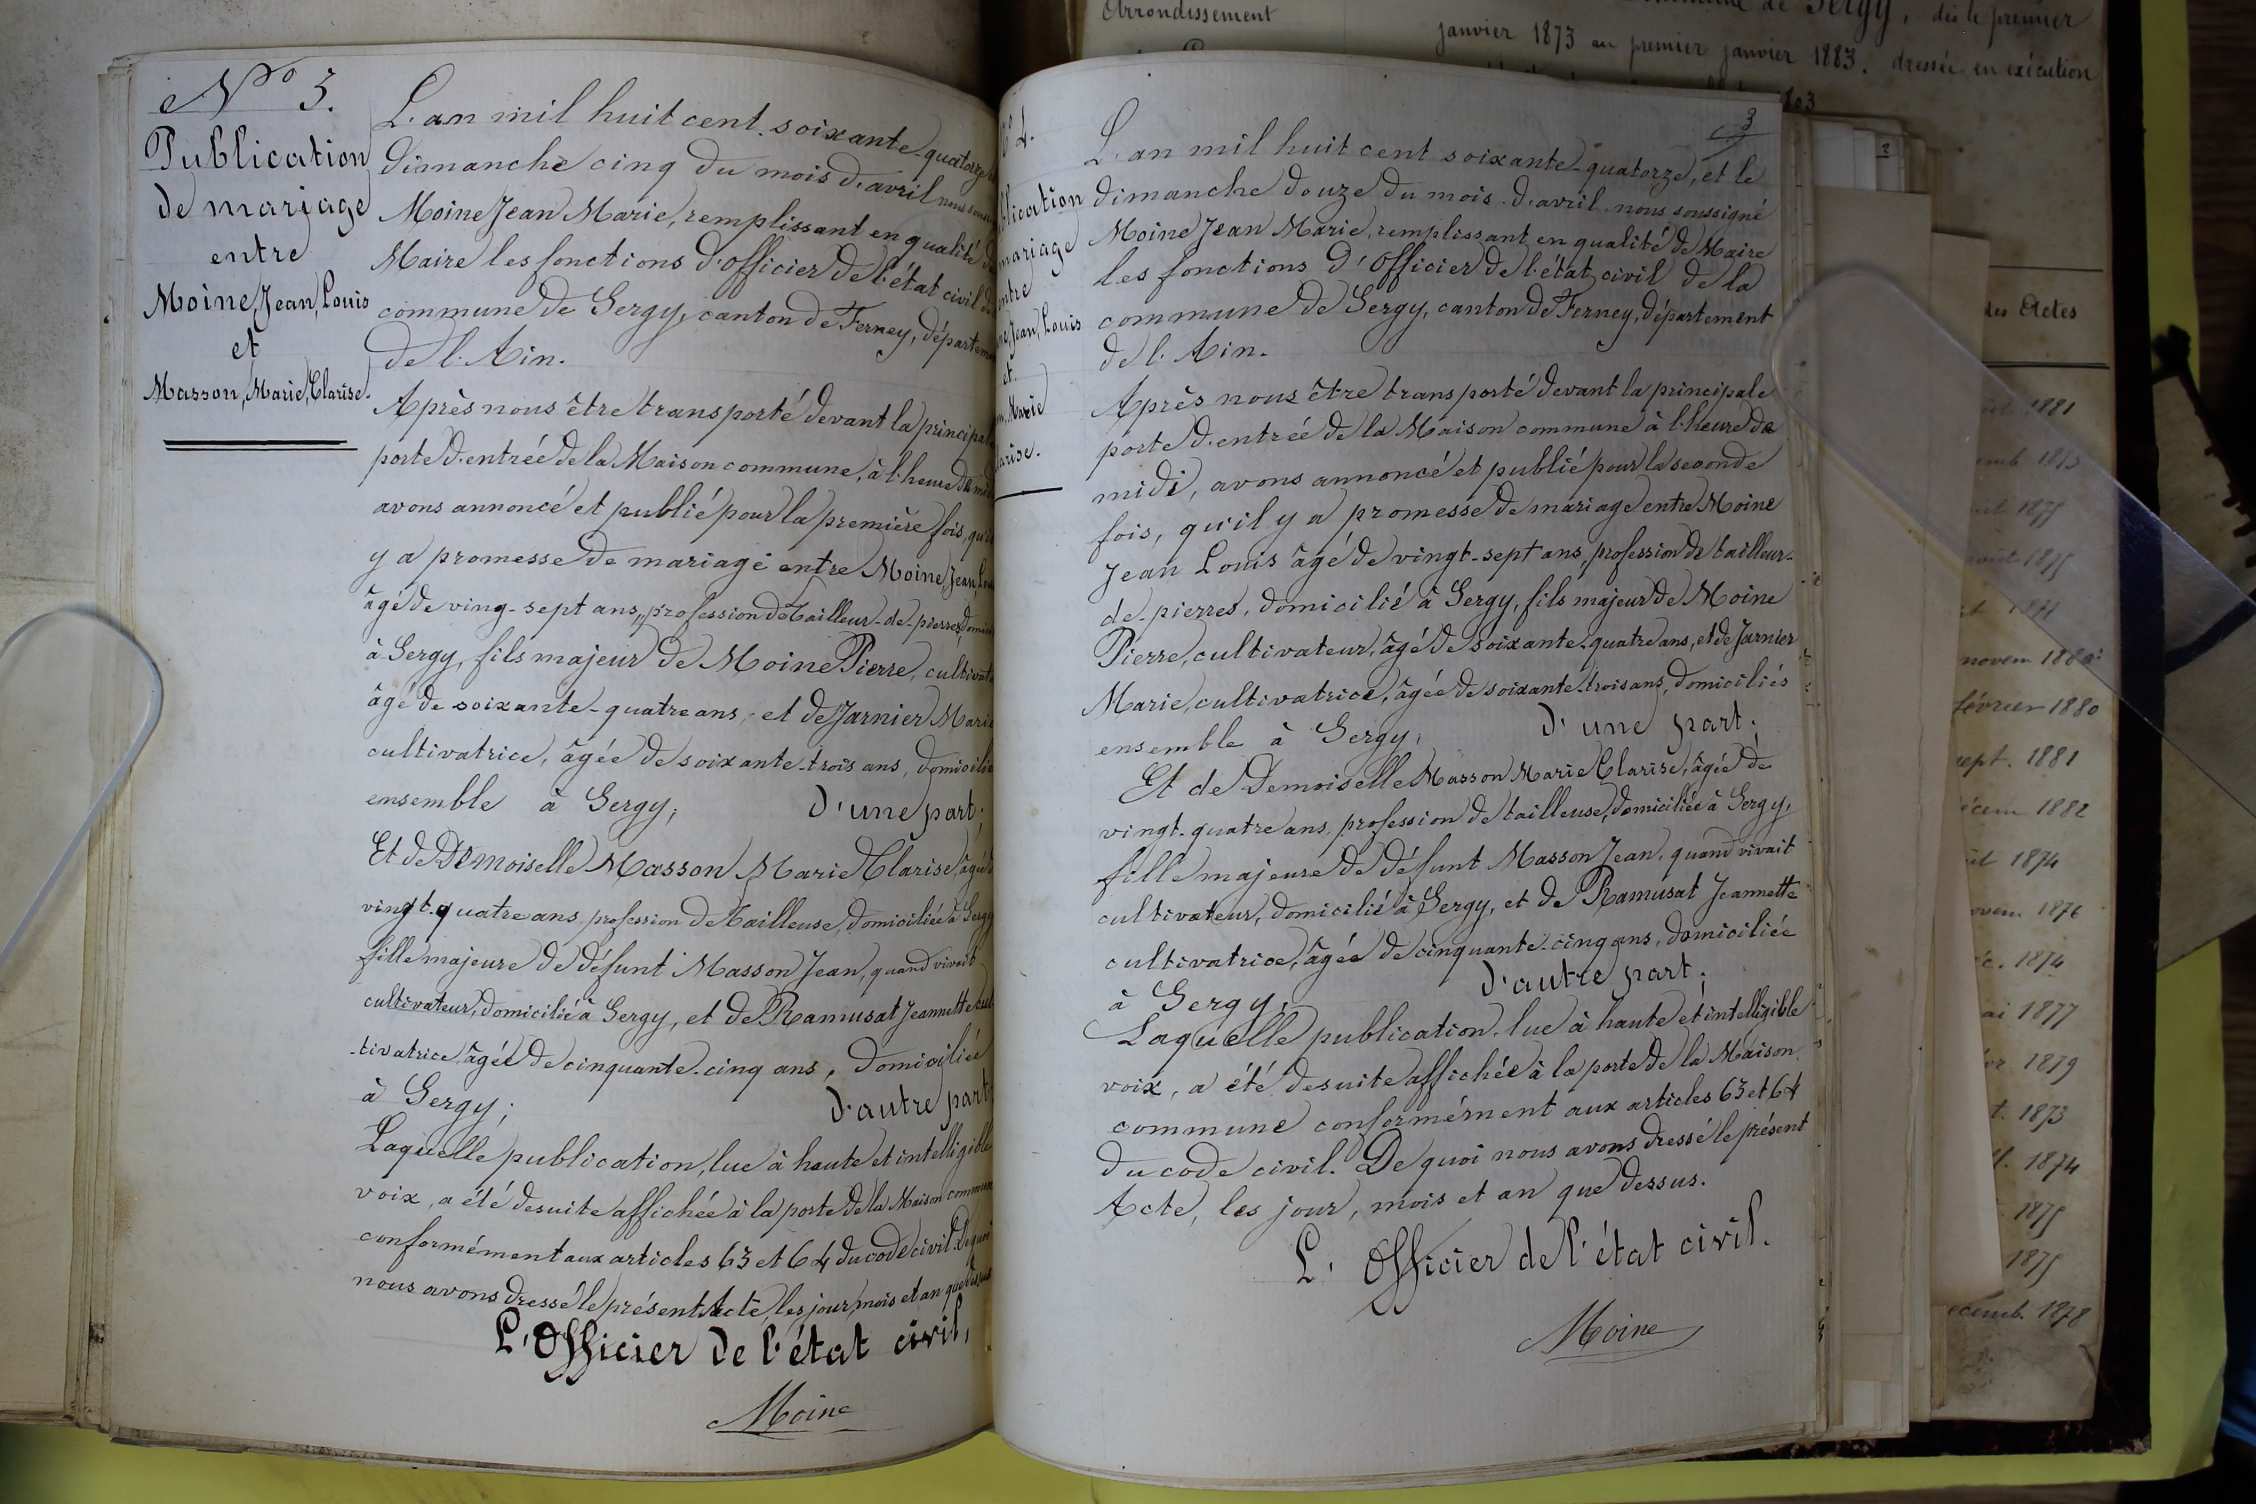 No 3.
Publication
de mariage
entre
Moine, Jean, Louis
et
Masson, Marie, Clarise.
L'an mil huit cent soixante-quatorze
dimanche cinq du mois d'avril nous
Moine Jean Marie, remplissant en qualité de
Maire les fonctions d'officier de l'état civil de
commune de Sergy, canton de Ferney, départem
de l'Ain.
Après nous être transporté devant la principal
porte d'entrée de la Maison commune, à l'heure de
avons annoncé et publié pour la première fois, qu'il
y a promesse de mariage entre Moine, Jean,
âgé de ving-sept ans, profession de Tailleur-de-pierres, domici
à Sergy, fils majeur de Moine Pierre, cultivat
âgé de soixante-quatre ans, et de Jarnier Marie
cultivatrice, âgée de soixante-trois ans, domicilié
ensemble à Sergy, d'une part;
Et de Demoiselle Masson Marie Clarise, âgé
vingt-quatre ans, profession de Tailleuse, domiciliée à Sergy
fille majeure de défunt Masson Jean, quand vivait
cultivateur, domicilié à Sergy, et de Ramusat Jeannette cul
-tivatrice âgée de cinquante-cinq ans, domiciliée
à Sergy; d'autre part
Laquelle publication, lue à haute et intelligible
voix, a été desuite affichée à la porte de la Maison commune
conformément aux articles 63 et 64 du code civil. De quoi
nous avons dressé le présent Acte, les jour, mois et an que dessus
L'Officier de l'état civil,
Moine
3
4.
lication
mariage
entre
ne, Jean, Louis
et
Marie
larise.
L'an mil huit cent soixante-quatorze, et le
dimanche douze du mois d'avril nous soussigné
Moine Jean Marie, remplissant en qualité de Maire
les fonctions d'Officier de l'état civil de la
commune de Sergy, canton de Ferney, département
de l'Ain.
Après nous être transporté devant la principale
porte d'entrée de la Maison commune à l'heure de
midi, avons annoncé et publié pour la seconde
fois, qu'il y a promesse de mariage entre Moine
Jean Louis âgé de vingt-sept ans, profession de tailleur-
de-pierres, domicilié à Sergy, fils majeur de Moine
Pierre, cultivateur, âgé de soixante-quatre ans, et de Jarnier
Marie, cultivatrice, âgée de soixante-trois ans, domiciliés
ensemble à Sergy, d'une part;
Et de Demoiselle Masson Marie Clarise, âgée de
vingt-quatre ans, profession de tailleuse, domiciliée à Sergy,
fille majeure de défunt Masson Jean, quand vivait
cultivateur, domicilié à Sergy, et de Ramusat Jeannette
cultivatrice, âgée de cinquante-cinq ans, domiciliée
à Sergy, d'autre part;
Laquelle publication, lue à haute et intelligible
voix, a été desuite affichée à la porte de la Maison
commune conformément aux articles 63 et 64
du code civil. De quoi nous avons dressé le présent
Acte, les jour, mois et an que dessus.
L'Officier de l'état civil.
Moine
Arrondissement
de Sergy, dès le premier
janvier 1873 au premier janvier 1883. dressée en exécution
des Actes
1881
1875
1875
novem 1880
février 1880
sept. 1881
écem 1882
1874
ovem 1876
1874
ai 1877
1879
1873
1874
1875
1875
écemb. 1878